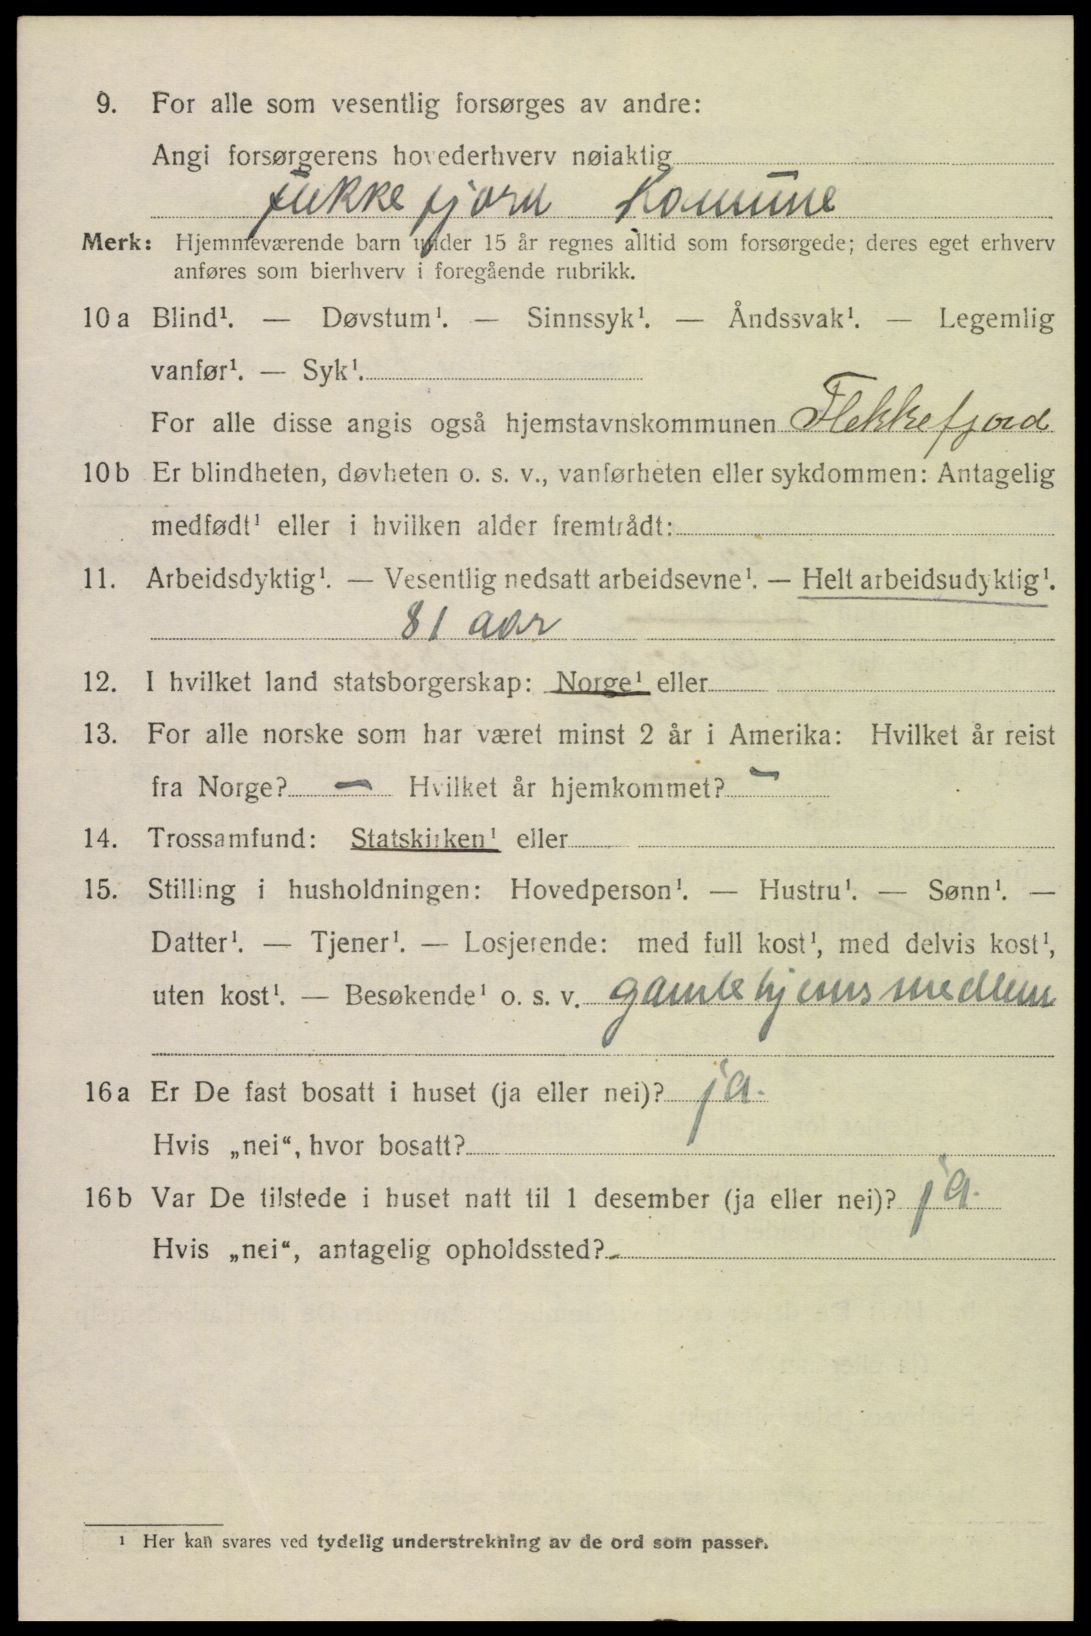 9. For alle som vesentlig forsørges av andre:
Angi forsørgerens hovederhverv nøiaktig
Flekkefjord Komune
Merk: Hjemmeværende barn under 15 år regnes alltid som forsørgede; deres eget erhverv
anføres som bierhverv i foregående rubrikk.
10a Blind¹. — Døvstum¹. — Sinnssyk¹. — Åndssvak¹. — Legemlig
vanfør¹. — Syk¹.
For alle disse angis også hjemstavnskommunen Flekkefjord
10b Er blindheten, døvheten o. s. v., vanførheten eller sykdommen: Antagelig
medfødt¹ eller i hvilken alder fremtrådt:
11. Arbeidsdyktig¹. — Vesentlig nedsatt arbeidsevne¹. — Helt arbeidsudyktig¹.
81 aar
12. I hvilket land statsborgerskap: Norge¹ eller
13. For alle norske som har været minst 2 år i Amerika: Hvilket år reist
fra Norge? — Hvilket år hjemkommet? —
14. Trossamfund: Statskirken¹ eller
15. Stilling i husholdningen: Hovedperson¹. — Hustru¹. — Sønn¹. —
Datter¹. — Tjener¹. — Losjerende: med full kost¹, med delvis kost¹,
uten kost¹. — Besøkende¹ o. s. v. gamlehjemsmedlem
16a Er De fast bosatt i huset (ja eller nei)? ja.
Hvis „nei“, hvor bosatt?
16b Var De tilstede i huset natt til 1 desember (ja eller nei)? ja.
Hvis „nei“, antagelig opholdssted?
¹ Her kan svares ved tydelig understrekning av de ord som passer.